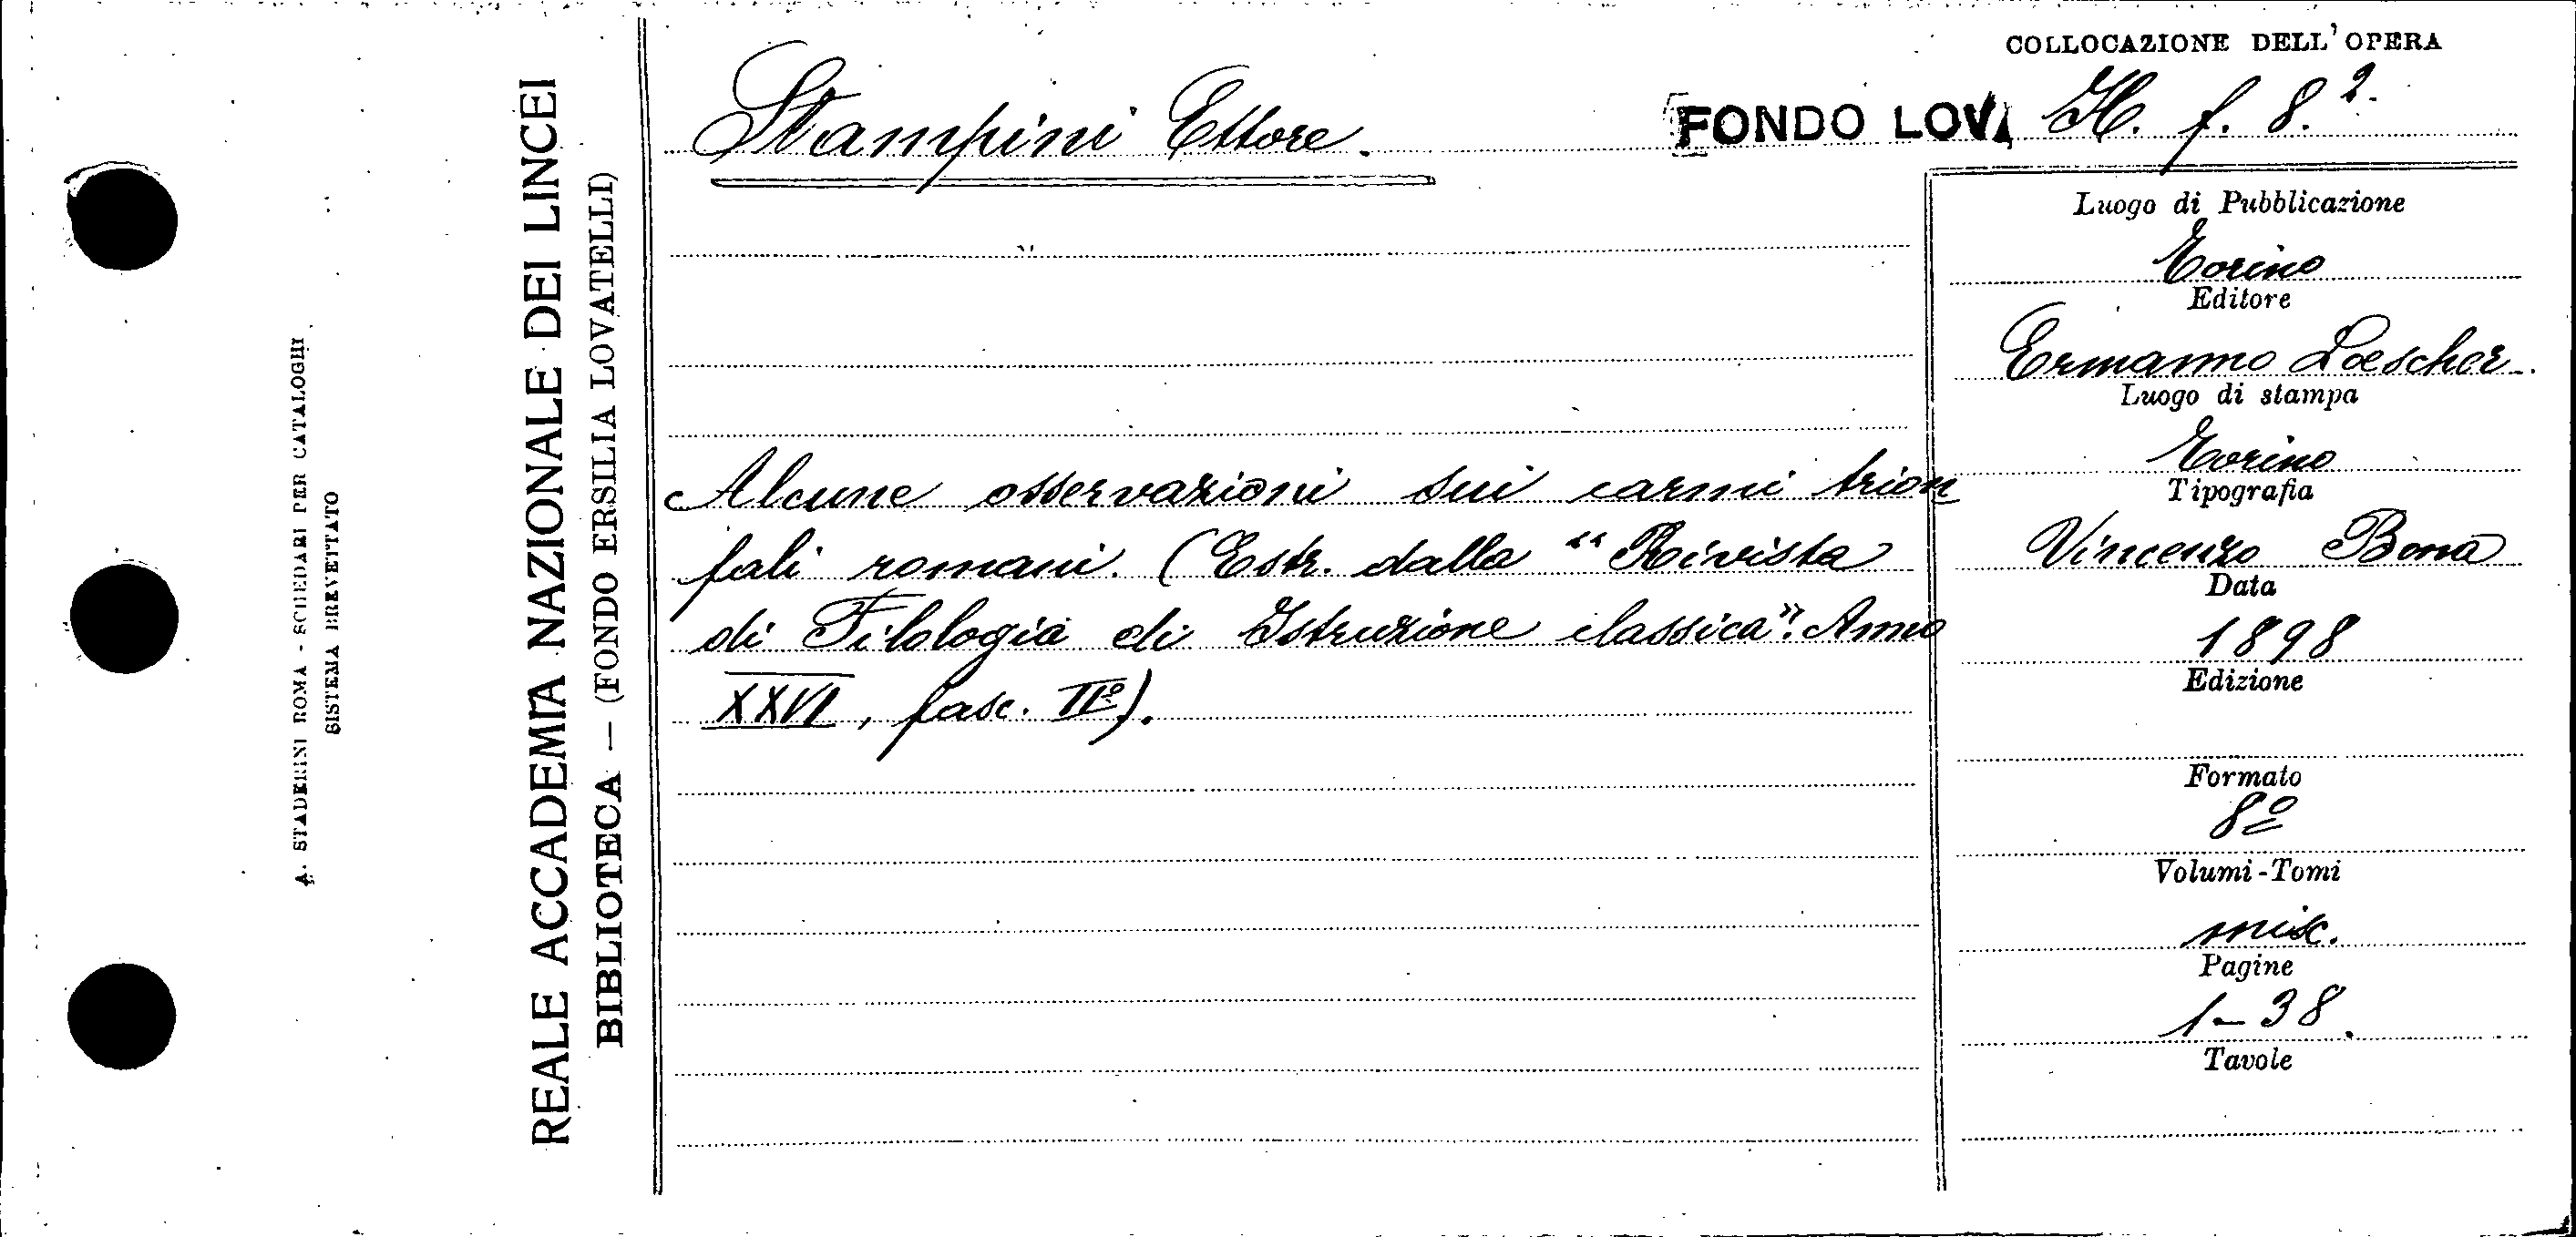 A. STADERINI ROMA - SCHEDARI PER CATALOGHI
SISTEMA BREVETTATO
REALE ACCADEMIA NAZIONALE DEI LINCEI
BIBLIOTECA — (FONDO ERSILIA LOVATELLI)
COLLOCAZIONE DELL'OPERA
Stampini Ettore.
FONDO LOV. H. f. 8.2.
Alcune osservazioni sui carmi trion
fali romani. (Estr. dalla “Rivista
di Filologia di Istruzione classica”. Anno
XXVI, fasc. IIº).
Luogo di Pubblicazione
Torino
Editore
Ermanno Loescher.
Luogo di stampa
Torino
Tipografia
Vincenzo Bona
Data
1898
Edizione
Formato
8º
Volumi-Tomi
misc.
Pagine
1-38.
Tavole